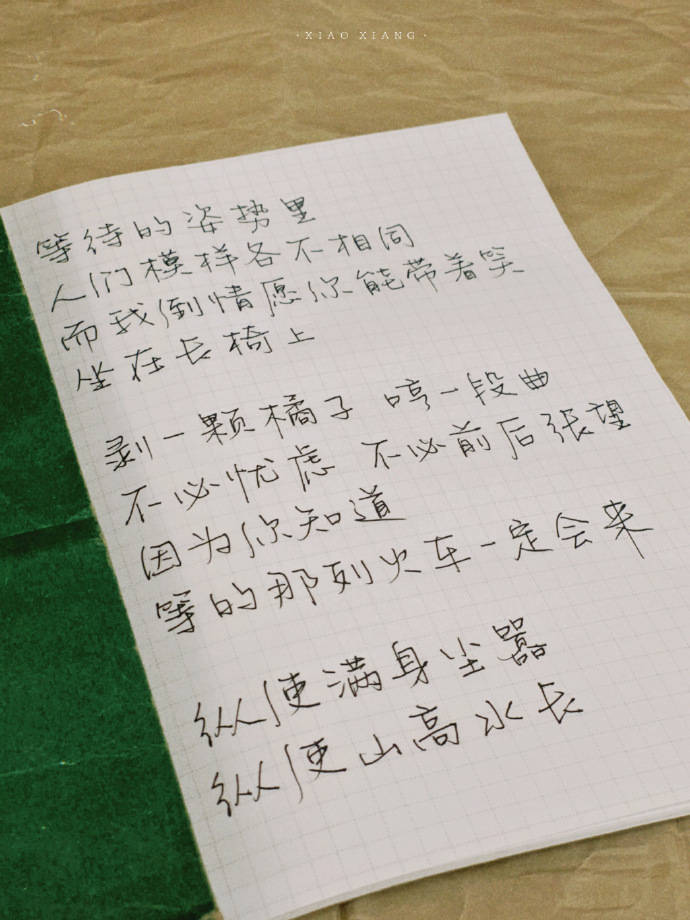 ·XIAO XIANG·
等待的姿势里
人们模样各不相同
而我倒情愿你能带着笑
坐在长椅上
剥一颗橘子 哼一段曲
不必忧虑 不必前后张望
因为你知道
等的那列火车一定会来
纵使满身尘嚣
纵使山高水长